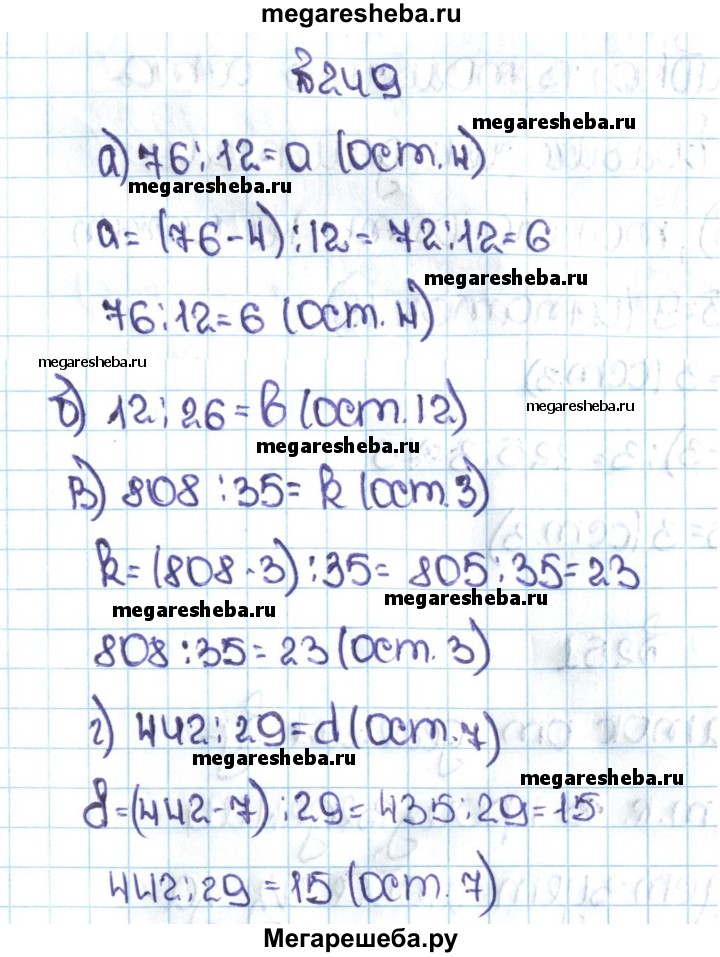 megaresheba.ru
№249
megaresheba.ru
а) 76:12=а (ост. 4)
megaresheba.ru
а= (76-4):12= 72:12=6
megaresheba.ru
76:12=6 (ост. 4)
megaresheba.ru
б) 12:26=в (ост. 12)
megaresheba.ru
megaresheba.ru
в) 808:35= k (ост. 3)
k= (808-3):35= 805:35=23
megaresheba.ru
megaresheba.ru
808:35=23 (ост. 3)
г) 442:29=d (ост. 7)
megaresheba.ru
megaresheba.ru
d=(442-7):29=435:29=15
442:29=15 (ост. 7)
Мегарешеба.ру